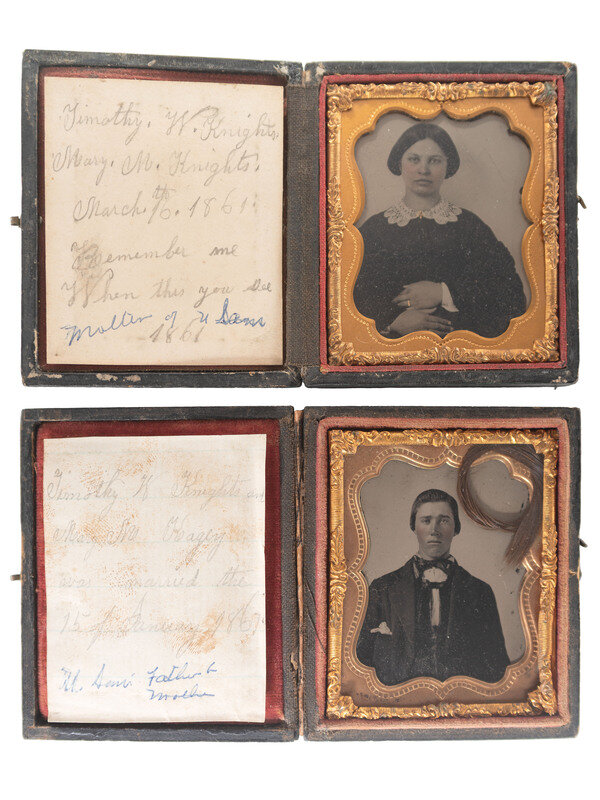 Timothy. W. Knights.
Mary. M. Knights.
March. 16. 1861.
Remember me
When this you see
1861
Mother of U Sam
Timothy W Knights and
May M. Hagey
was married the
15 of January 1861
U. Sam Father &
Mother